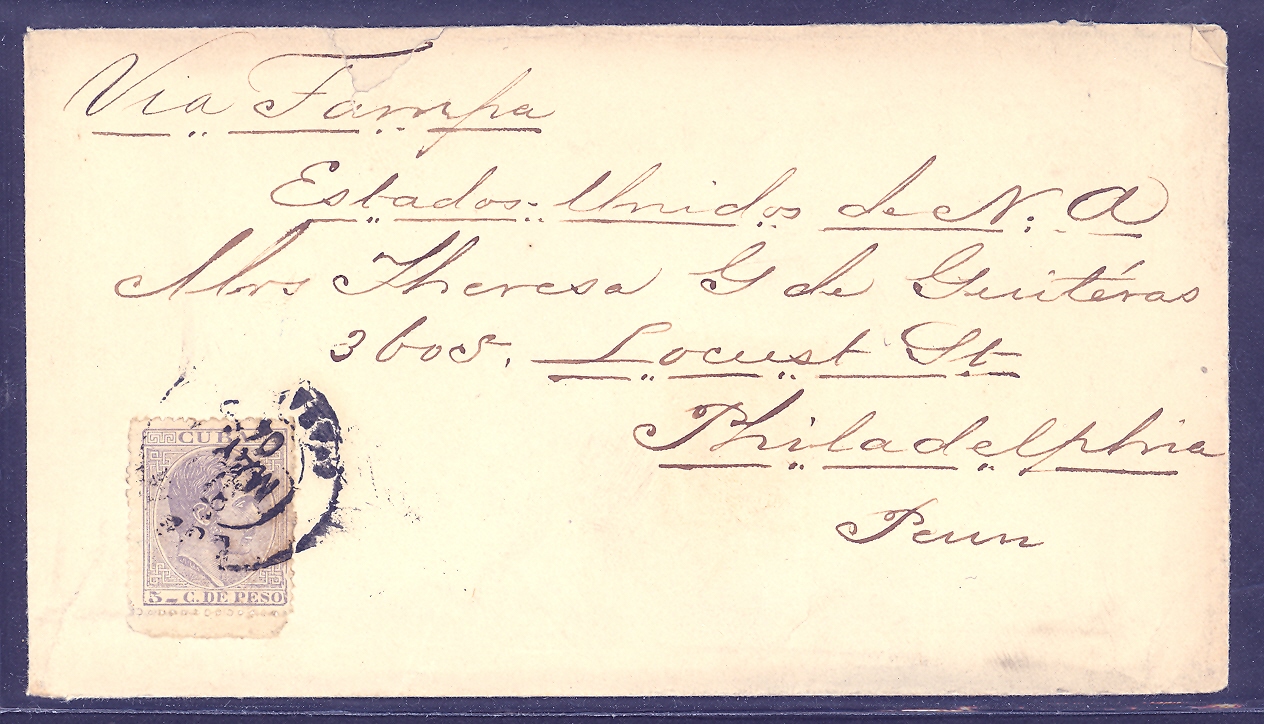 Via Tampa
Estados-Unidos de N. A
Mrs Theresa G de Guitéras
3605. Locust St
Philadelphia
Penn
CUBA
5- C. DE PESO
MAY